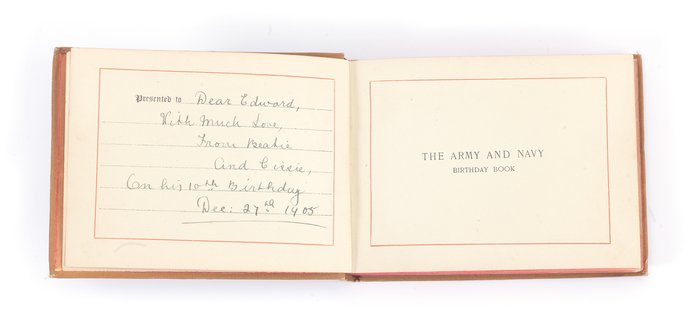 Presented to Dear Edward,
With Much Love,
From Beatie
And Cissie,
On his 10th Birthday
Dec: 27th 1905
THE ARMY AND NAVY
BIRTHDAY BOOK